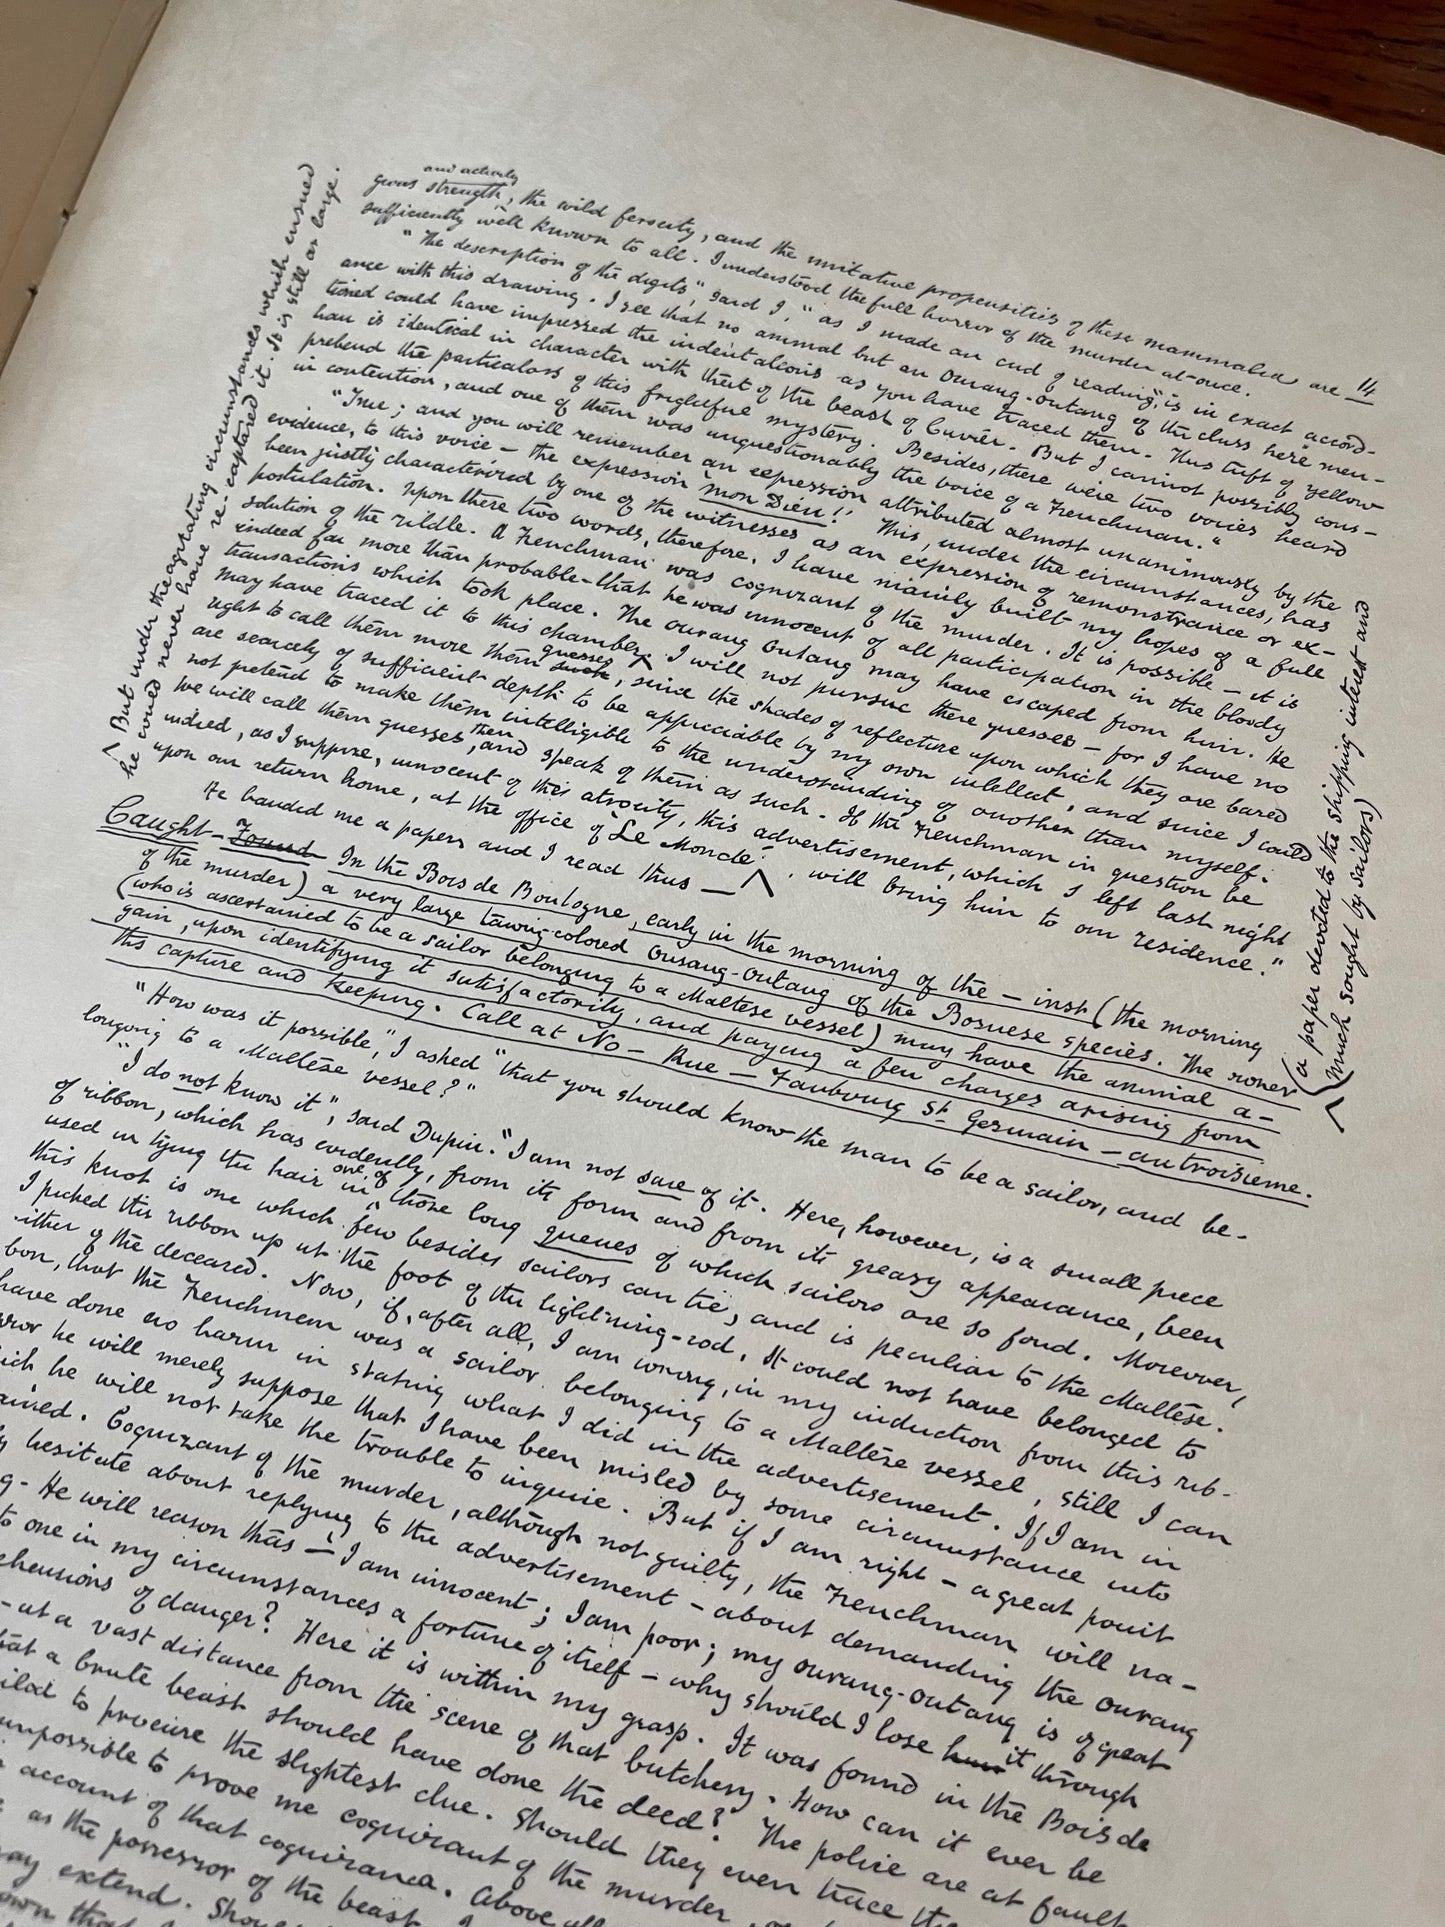 But under the agitating circumstances which ensued
he could never have re-captured it. It is still at large.
14
and activity
gious strength, the wild ferocity, and the imitative propensities of these mammalia are
sufficiently well known to all. I understood the full horror of the murder at once.
"The description of the digits," said I, "as I made an end of reading, "is in exact accord-
ance with this drawing. I see that no animal but an Ourang-Outang of the class here men-
tioned could have impressed the indentations as you have traced them. This tuft of yellow
hair is identical in character with that of the beast of Cuvier. But I cannot possibly com-
prehend the particulars of this frightful mystery. Besides, there were two voices heard
in contention, and one of them was unquestionably the voice of a Frenchman."
"True; and you will remember an expression attributed almost unanimously by the
evidence, to this voice — the expression 'mon Dieu!' This, under the circumstances, has
been justly characterized by one of the witnesses as an expression of remonstrance or ex-
postulation. Upon these two words, therefore, I have mainly built my hopes of a full
solution of the riddle. A Frenchman was cognizant of the murder. It is possible — it is
indeed far more than probable — that he was innocent of all participation in the bloody
transactions which took place. The Ourang Outang may have escaped from him. He
may have traced it to this chamber. I will not pursue these guesses — for I have no
right to call them more than such guesses, since the shades of reflection upon which they are based
are scarcely of sufficient depth to be appreciable by my own intellect, and since I could
not pretend to make them intelligible to the understanding of another than myself.
We will call them guesses then, and speak of them as such. If the Frenchman in question be
indeed, as I suppose, innocent of this atrocity, this advertisement, which I left last night
upon our return home, at the office of 'Le Monde', will bring him to our residence."
(a paper devoted to the shipping interest and
much sought by sailors)
He handed me a paper, and I read thus —
Caught — Found In the Bois de Boulogne, early in the morning of the — inst (the morning
of the murder) a very large tawny-colored Ourang-Outang of the Bornese species. The owner
(who is ascertained to be a sailor belonging to a Maltese vessel) may have the animal a-
gain, upon identifying it satisfactorily, and paying a few charges arising from
its capture and keeping. Call at No — Rue — Faubourg St. Germain — au troisieme.
"How was it possible," I asked "that you should know the man to be a sailor, and be-
longing to a Maltese vessel?"
"I do not know it", said Dupin. "I am not sure of it. Here, however, is a small piece
of ribbon, which has evidently, from its form and from its greasy appearance, been
used in tying the hair in one of those long queues of which sailors are so fond. Moreover,
this knot is one which few besides sailors can tie, and is peculiar to the Maltese.
I picked this ribbon up at the foot of the lightning-rod. It could not have belonged to
either of the deceased. Now, if, after all, I am wrong, in my induction from this rib-
bon, that the Frenchman was a sailor belonging to a Maltese vessel, still I can
have done no harm in stating what I did in the advertisement. If I am in
error he will merely suppose that I have been misled by some circumstance into
which he will not take the trouble to inquire. But if I am right — a great point
gained. Cognizant of the murder, although not guilty, the Frenchman will na-
hesitate about replying to the advertisement — about demanding the Ourang
He will reason thus — 'I am innocent; I am poor; my Ourang-Outang is of great
to one in my circumstances a fortune of itself — why should I lose him it through
of danger? Here it is within my grasp. It was found in the Bois de
at a vast distance from the scene of that butchery. How can it ever be
that a brute beast should have done the deed? The police are at fault
to procure the slightest clue. Should they even trace the
impossible to prove me cognizant of the murder,
account of that cognizance. Above all
as the possessor of the beast. I
may extend.